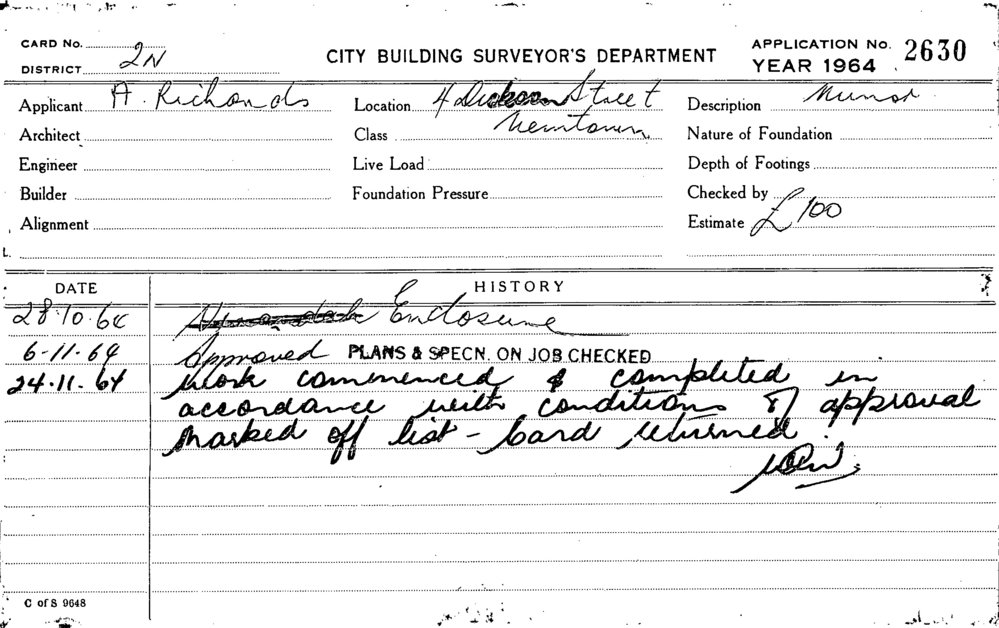 CARD No.
DISTRICT 2N
CITY BUILDING SURVEYOR'S DEPARTMENT
APPLICATION No. 2630
YEAR 1964
Applicant A. Richards Location 4 Dickson Street Description Minor
Architect Class Newtown Nature of Foundation
Engineer Live Load Depth of Footings
Builder Foundation Pressure Checked by
Alignment Estimate £100
L.
DATE HISTORY
28.10.64 Enclosure
6-11-64 Approved PLANS & SPECN. ON JOB CHECKED
24.11.64 Work commenced & completed in
accordance with conditions of approval
Marked off list - Card returned.
C of S 9648